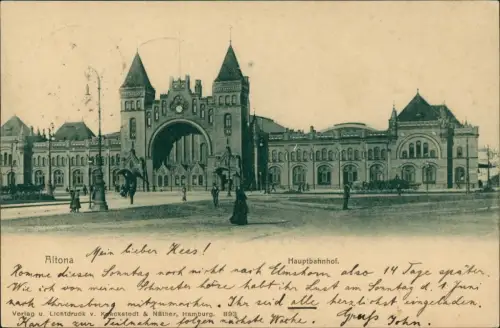 Altona
Hauptbahnhof.
Mein lieber Kees!
Komme diesen Sonntag noch nicht nach Elmshorn also 14 Tage später.
Wegen meiner Schwester habt ihr Lust am Sonntag d. 1 Juni
nach Ahrensburg mitzumachen. Ihr seid alle herzlichst eingeladen.
Verlag u. Lichtdruck v. Knackstedt & Näther, Hamburg. 293
Karten zur Teilnahme folgen nächste Woche. Gruß John.